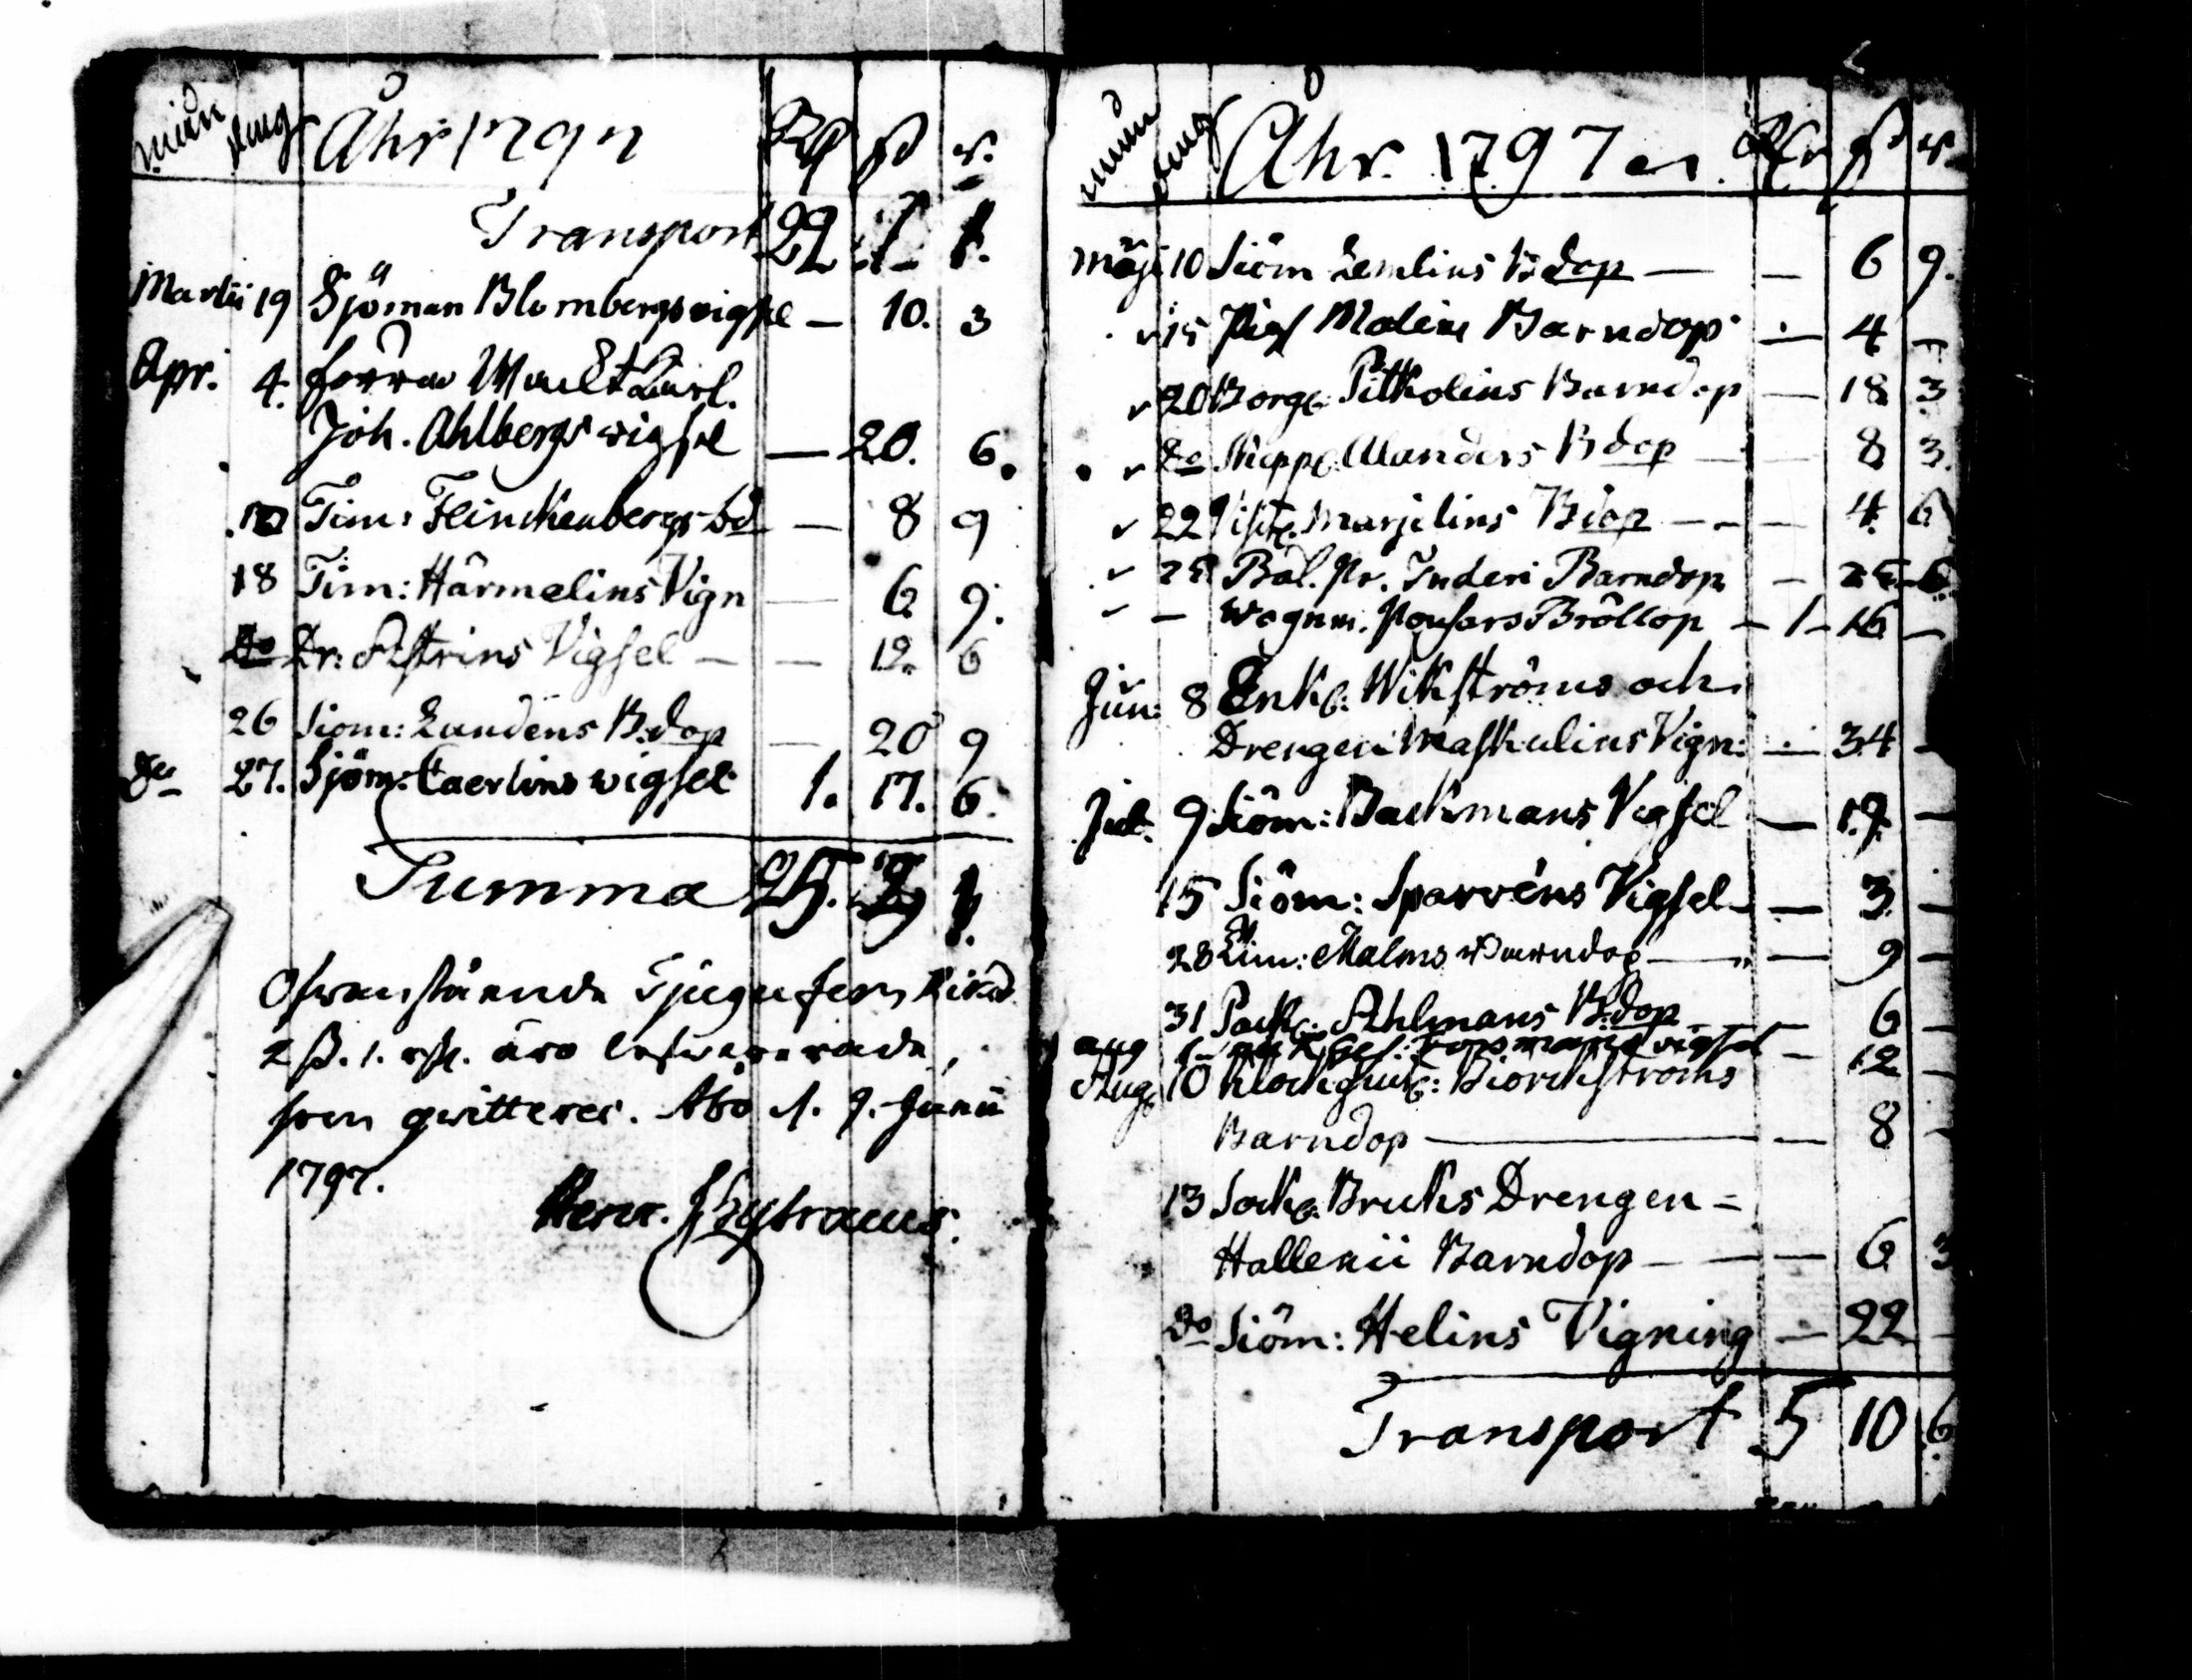 månd dag Åhr 1797 Rd ß r.
Transport 22 1 1.
Martii 19 Sjöman Blombergs vigsel — 10. 3
Apr. 4. förra
Joh. Ahlbergs wigsel — 20. 6.
12 Tim: Flinckenbergs bd — 8 9
18 Tim: Härmelins Vign — 6 9.
do Dr: Astrins Vigsel — — 12. 6
26 Siöm: Lundens B:dop — 20 9
do 27. Sjöm: Caerlins wigsel 1. 17. 6.
Summa 25. 2 1.
Ofwanstående Tjugufem Riksd
2 ß. 1. rst. äro lefwererade,
som qvitteres. Åbo d. 9. Junii
1797.
Henr.
månd dag Åhr. 1797 Rdr ß r.
Maji 10 Siöm Zemlins Bdop — — 6 9.
15 Malins Barndop — 4 —
20 Borg: Pitkolins Barndop — 18 3
do Skepp: Alanders Bdop — 8 3.
22 Marjelins Bdop — — 4. 6
25 Bal. Pr. Inderi Barndop — 25 6
— Wagnm. Ponsars Bröllop — 1 — 16 —
Jun: 8 Enk: Wikströms och
Drengen Maskulins Vign: — 34 —
Jul. 9 Siöm: Backmans Vigsel — 17. —
15 Siöm: Sparvéns Vigsel — — 3. —
28 Tim: Malms Barndop — — 9 —
31 Pack: Ahlmans B:dop — — 6 —
aug 1 vigsel — 12 —
Aug. 10 Klockgiut: Biorckströms
Barndop — — 8 —
13 Sock: Bruks Drengen =
Hallenii Barndop — — 6 3
do Siöm: Helins Vigning — 22 —
Transport 5 10 6